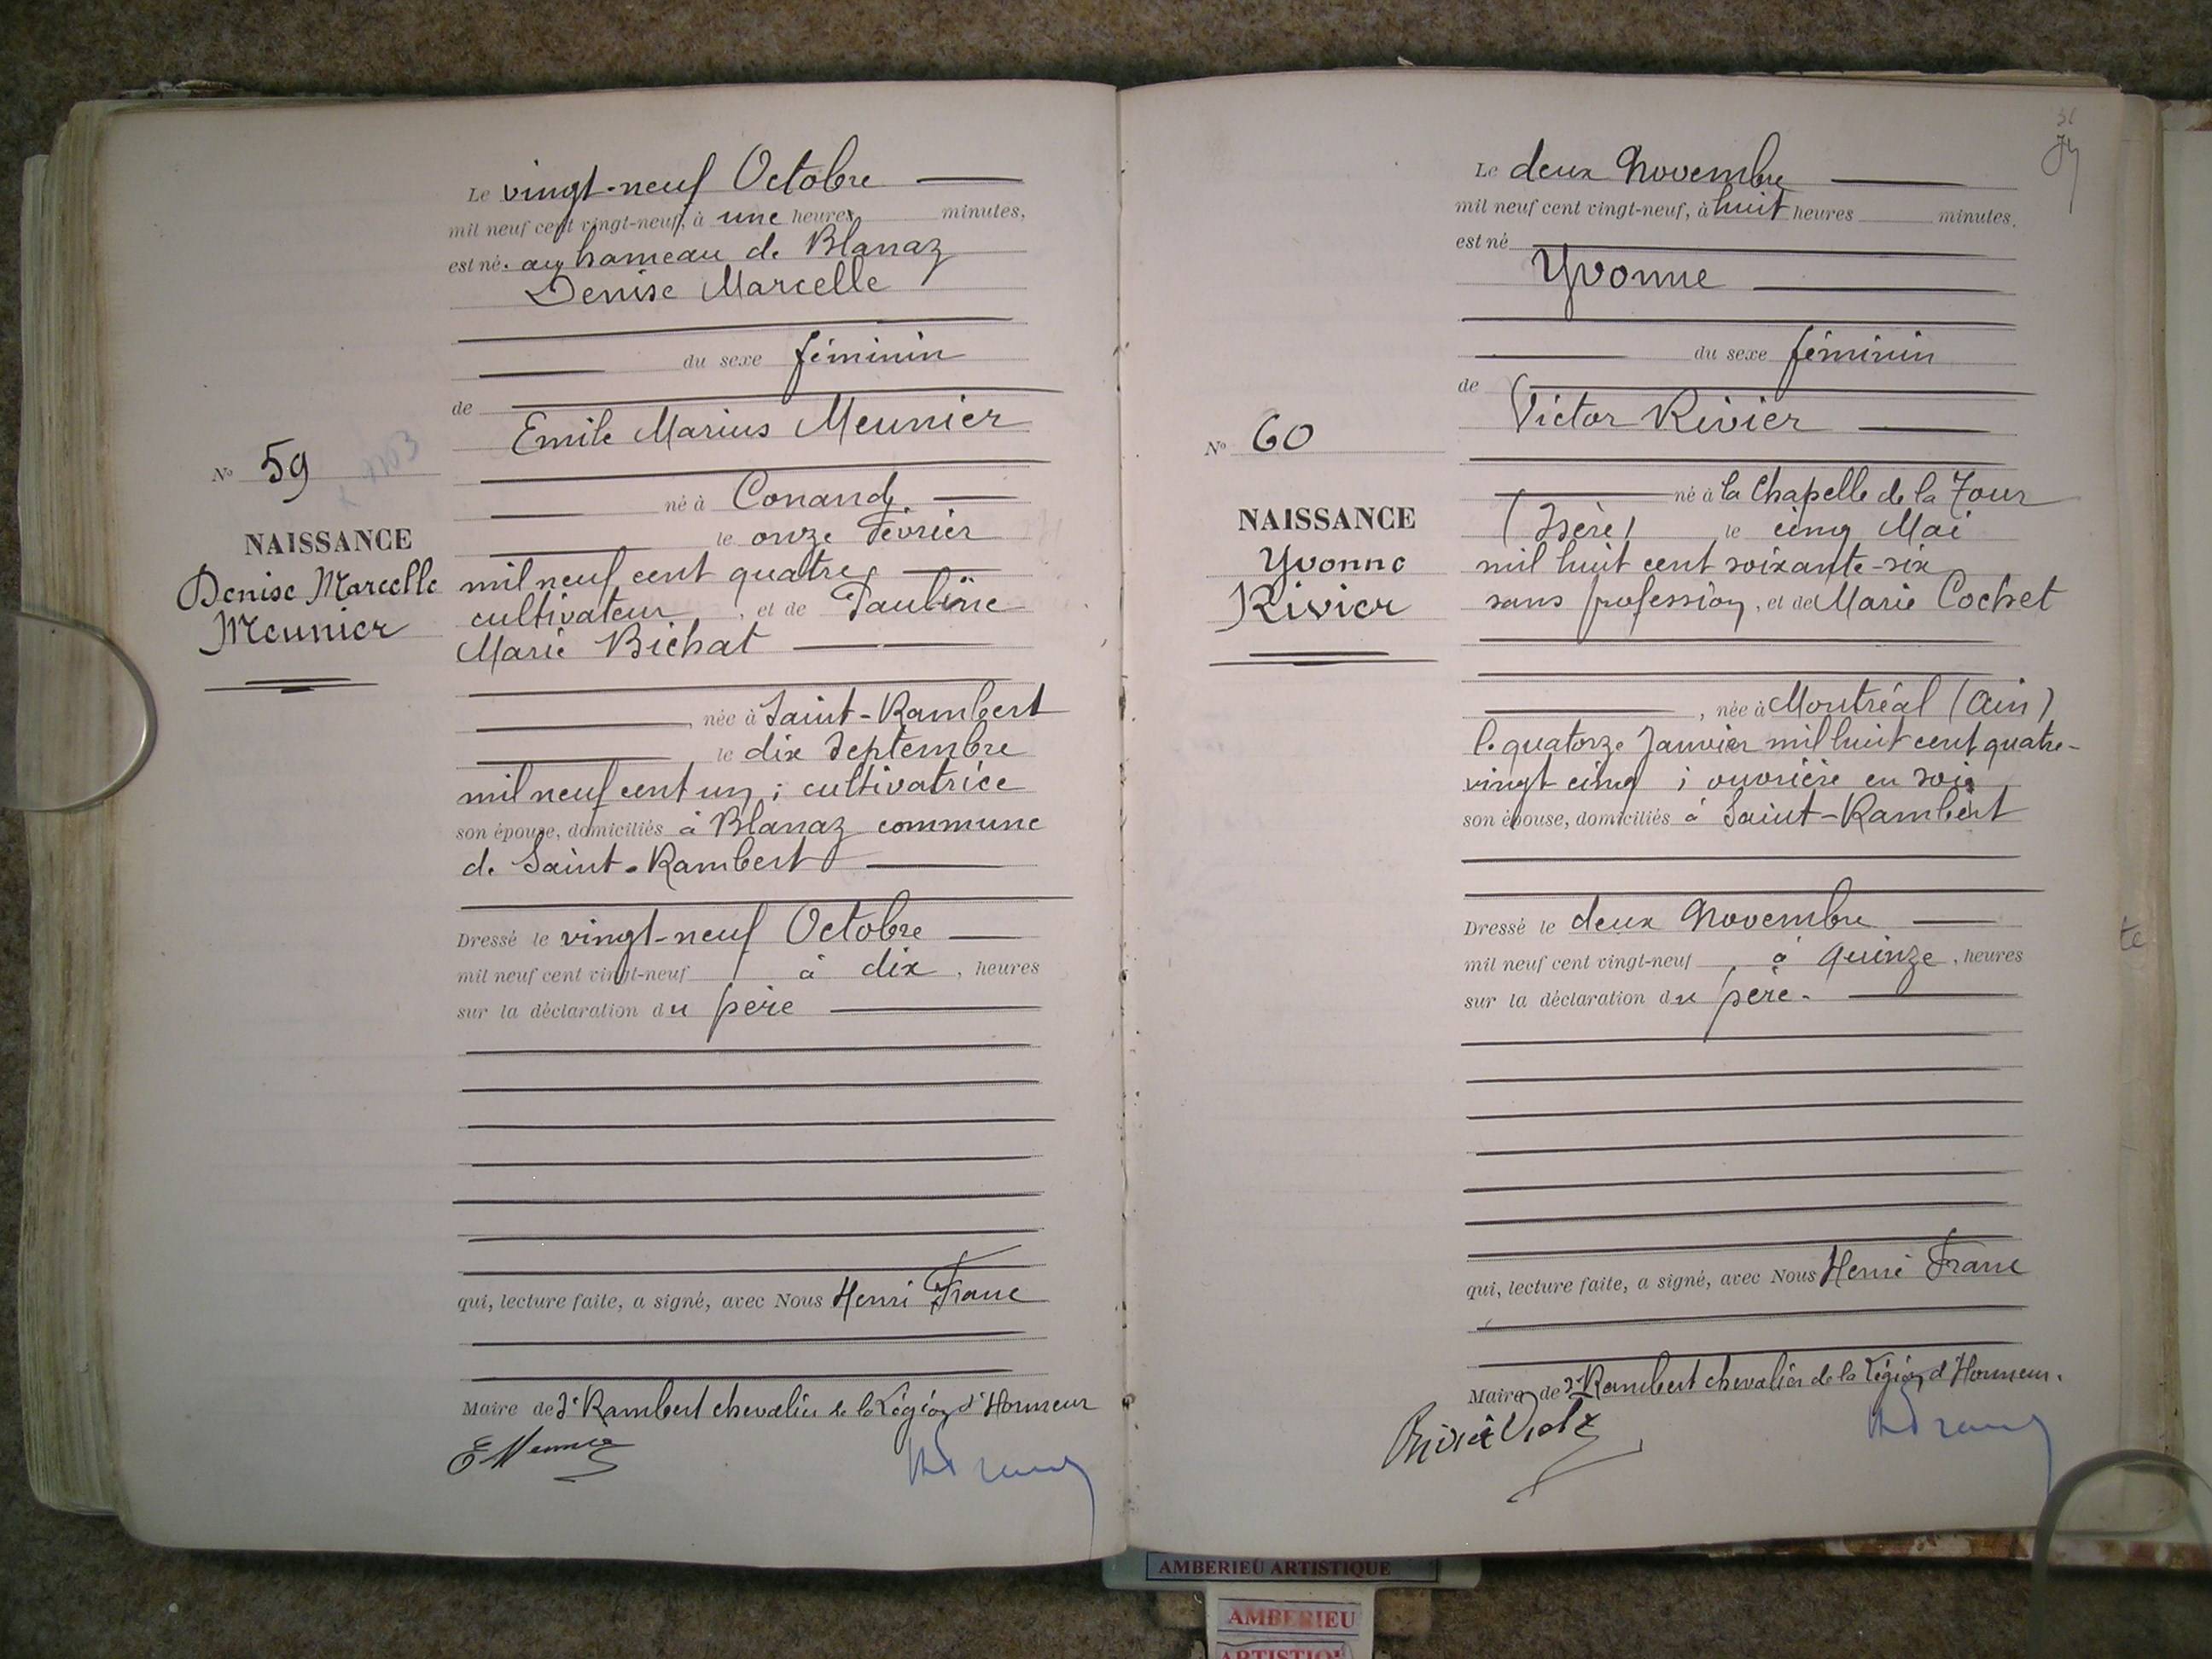 Le vingt-neuf Octobre
mil neuf cent vingt-neuf, à une heures minutes,
est né. au hameau de Blanaz
Denise Marcelle
du sexe féminin
de
Emile Marius Meunier
N° 59
né à Conand
NAISSANCE
Denise Marcelle
Meunier
le onze Février
mil neuf cent quatre
cultivateur, et de Pauline
Marie Bichat
née à Saint-Rambert
le dix Septembre
mil neuf cent un ; cultivatrice
son épouse, domiciliés à Blanaz commune
de Saint-Rambert
Dressé le vingt-neuf Octobre
mil neuf cent vingt-neuf à dix, heures
sur la déclaration du père
qui, lecture faite, a signé, avec Nous Henri Franc
Maire de St Rambert chevalier de la Légion d'Honneur
E Meunier
Le deux Novembre
mil neuf cent vingt-neuf, à huit heures minutes.
est né
Yvonne
du sexe féminin
de
Victor Rivier
N° 60
NAISSANCE
Yvonne
Rivier
né à la Chapelle de la Tour
(Isère) le cinq Mai
mil huit cent soixante-six
sans profession, et de Marie Cochet
, née à Montréal (Ain)
le quatorze Janvier mil huit cent quatre-
vingt cinq ; ouvrière en soie
son épouse, domiciliés à Saint-Rambert
Dressé le deux Novembre
mil neuf cent vingt-neuf, à quinze, heures
sur la déclaration du père.
qui, lecture faite, a signé, avec Nous Henri Franc
Maire de St Rambert chevalier de la Légion d'Honneur.
te
AMBERIEU ARTISTIQUE
AMBERIEU